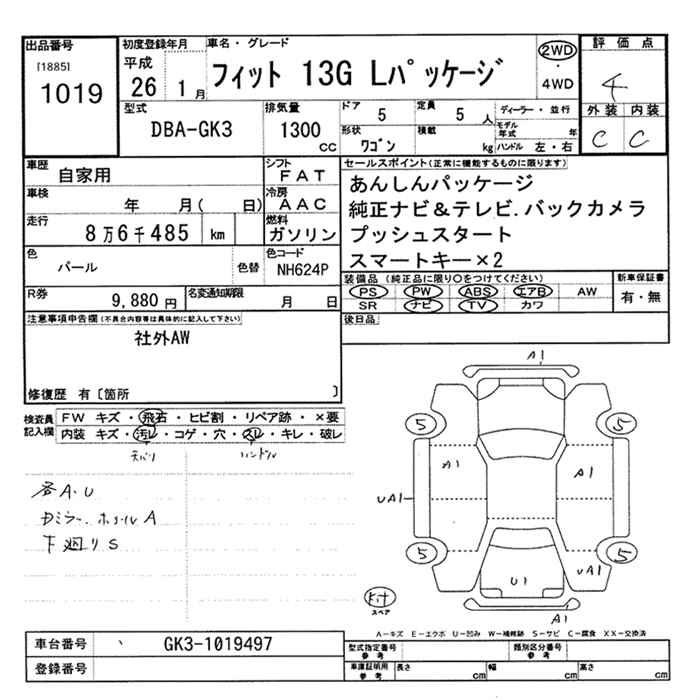 出品番号
[1885]
1019
初度登録年月
平成
26 1月
車名・グレード
フィット 13G Lパッケージ
2WD
・
4WD
評価点
4
外装 内装
C C
型式
DBA-GK3
排気量
1300
CC
ドア
5
定員
5 人
形状
ワゴン
積載
kg
ディーラー・並行
モデル年式 年
ハンドル 左・右
車歴
自家用
シフト
FAT
車検
年 月( 日)
冷房
AAC
走行
8万6千485 km
燃料
ガソリン
色
パール
色替
色コード
NH624P
R券
9,880円
名変通知期限
月 日
セールスポイント(正常に機能するものに限ります)
あんしんパッケージ
純正ナビ&テレビ.バックカメラ
プッシュスタート
スマートキー×2
装備品(純正品に限り○をつけてください)
PS PW ABS エアB AW
SR ナビ TV カワ
新車保証書
有・無
後日品
注意事項申告欄(不具合内容等は具体的に記入して下さい)
社外AW
修復歴 有〔箇所 〕
検査員
記入欄
FW キズ・飛石・ヒビ割・リペア跡・×要
内装 キズ・汚レ・コゲ・穴・スレ・キレ・破レ
天バリ ハンドル
各A.U
Dミラー.ホイルA
下廻りS
A1
5 5
A1 A1
UA1
5 5
U1 UA1
A1
Kit
スペア
A-キズ E-エクボ U-凹み W-補修跡 S-サビ C-腐食 XX-交換済
車台番号 GK3-1019497
登録番号
型式指定番号
参考
類別区分番号
参考
車庫証明用
参考
長さ cm 幅 cm 高さ cm